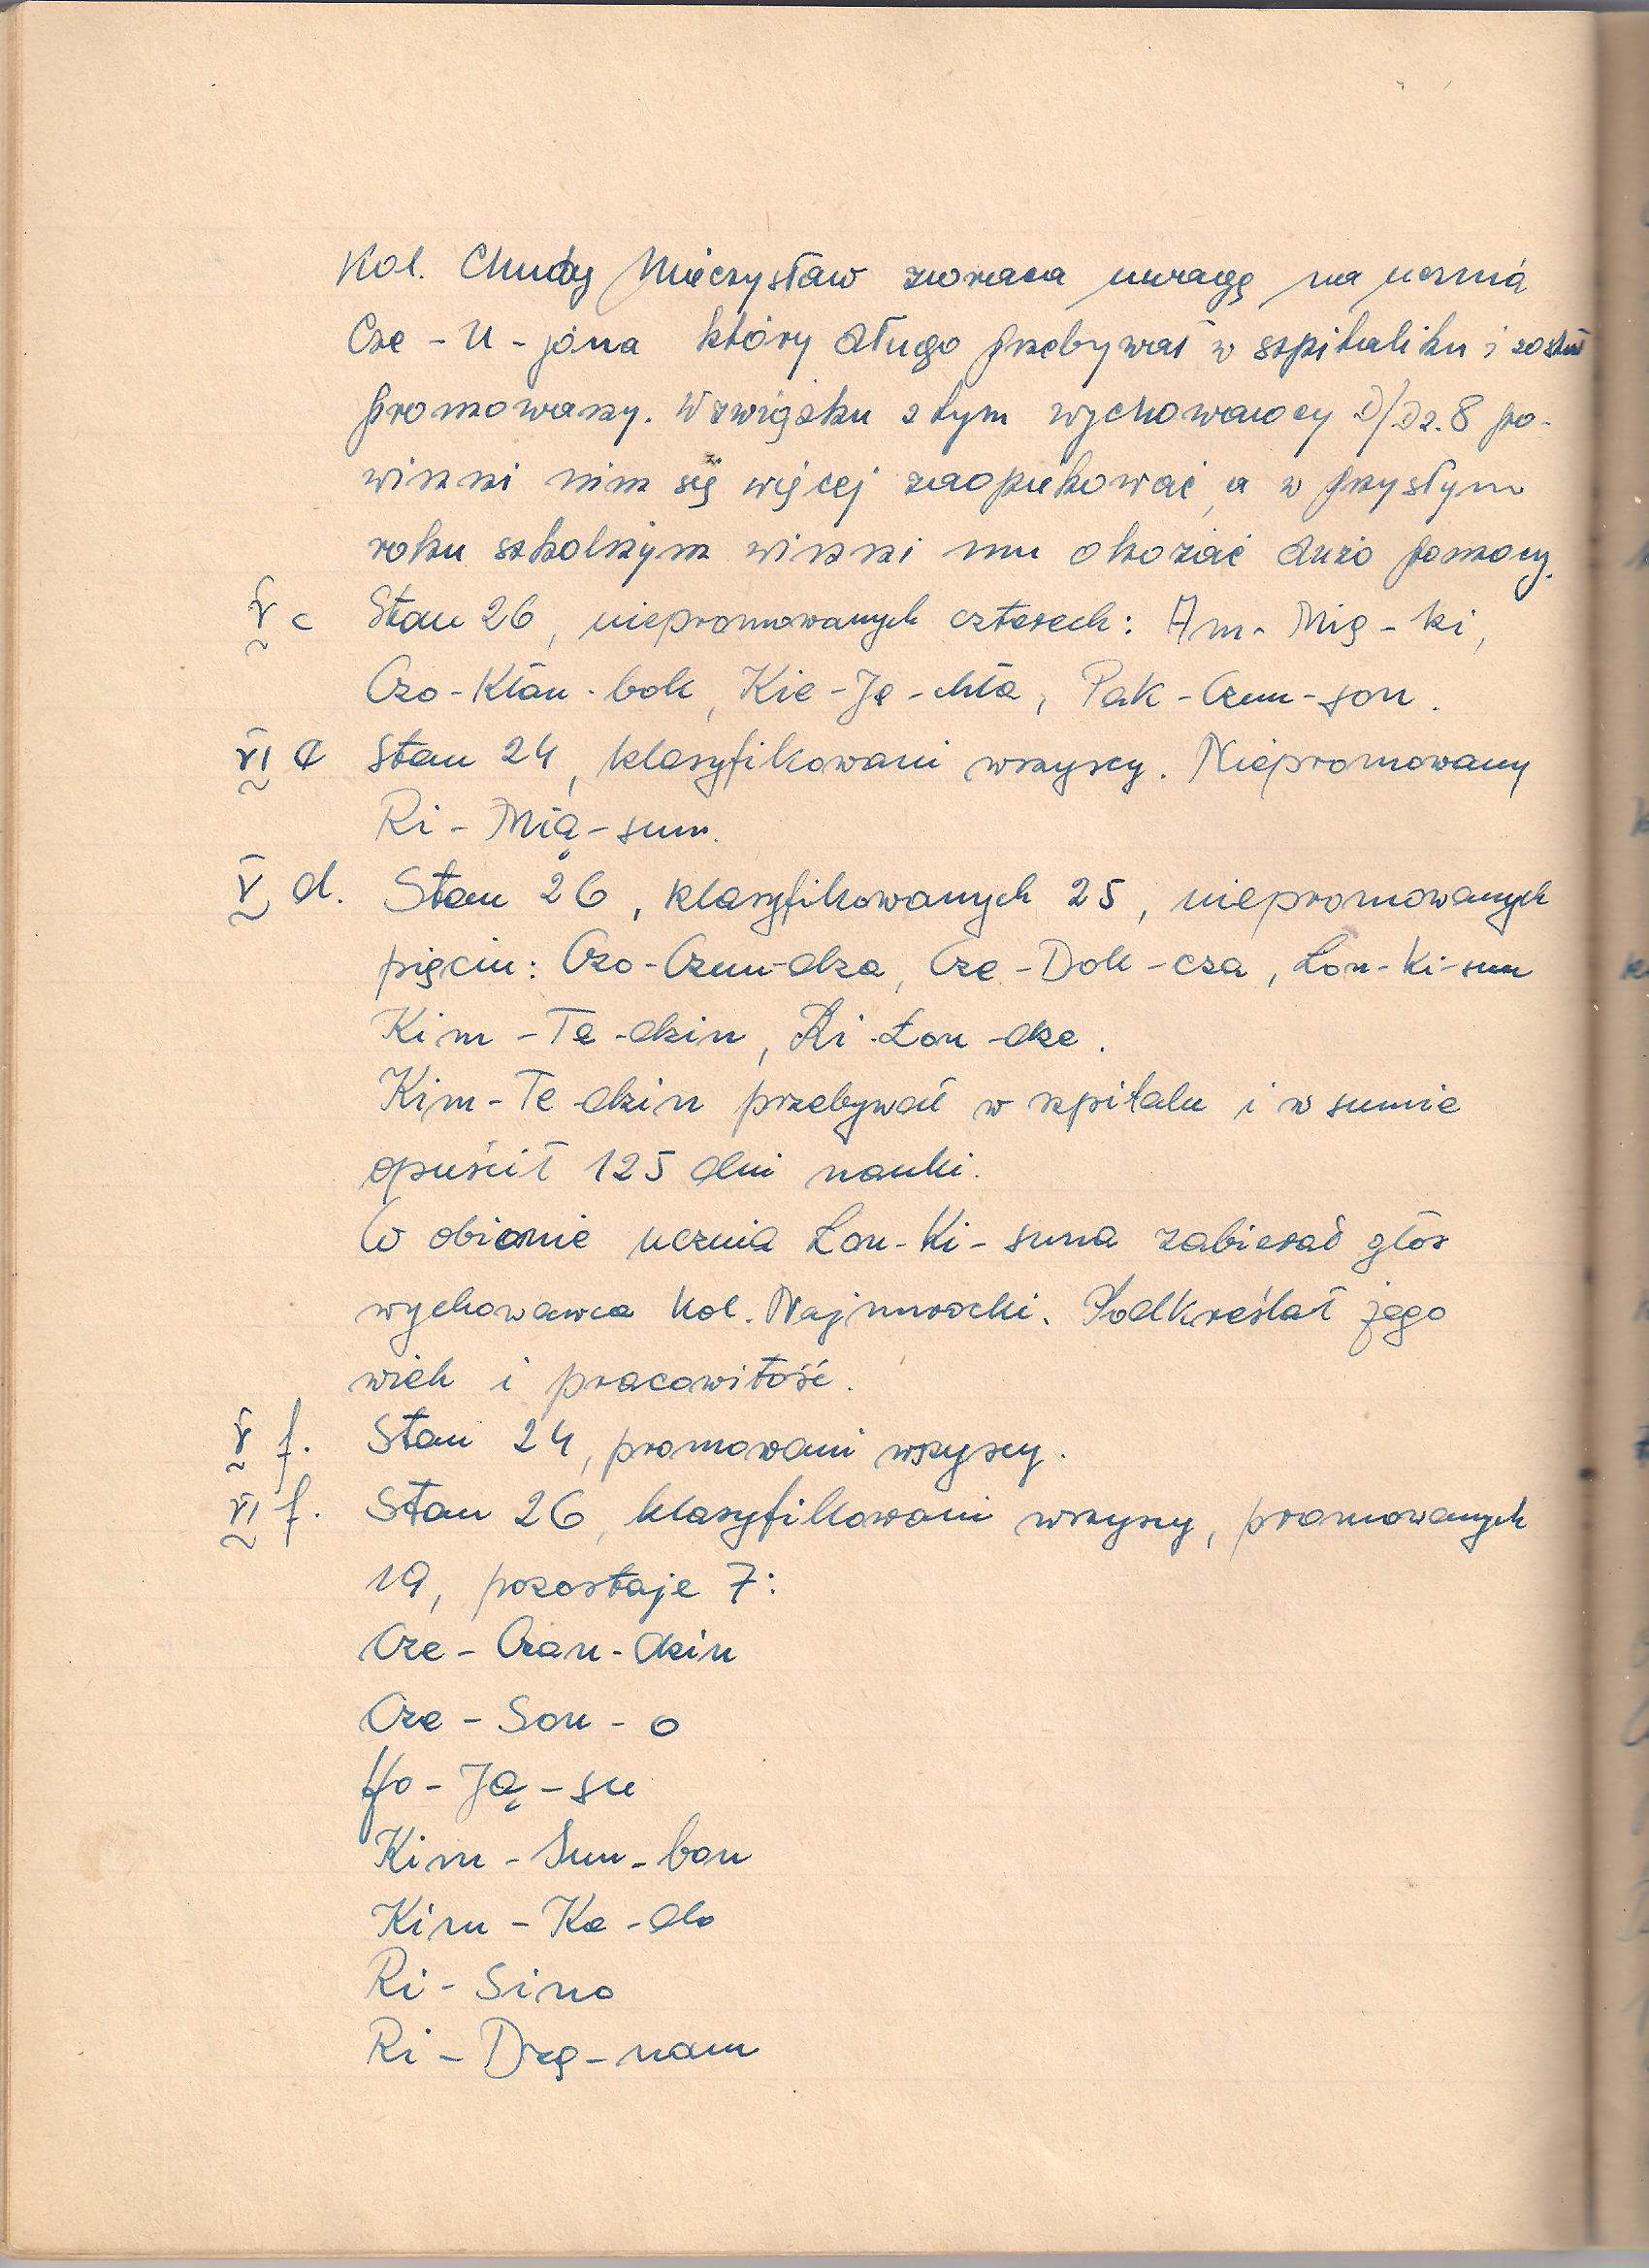 Kol. Chudy Mieczysław zwraca uwagę na ucznia
Cze - U - jona który długo przebywał w szpitaliku i został
promowany. W związku z tym wychowawcy D/Dz. 8 po-
winni nim się więcej zaopiekować, a w przysłym
roku szkolnym winni mu okazać dużo pomocy.
V c Stan 26, niepromowanych czterech: Am - Mię - ki,
Czo - Kłan - bok, Kie - Ję - chła, Pak - Czun - son.
VI c Stan 24, klasyfikowani wszyscy. Niepromowany
Ri - Mią - sum.
V d. Stan 26, klasyfikowanych 25, niepromowanych
pięciu: Czo - Czun - dza, Cze - Dok - cza, Łon - Ki - sun
Kim - Te - dzin, Ri - Łon - dze.
Kim - Te - dzin przebywał w szpitalu i w sumie
opuścił 125 dni nauki.
W obronie ucznia Łon - Ki - suna zabierał głos
wychowawca kol. Najmrocki. Podkreślał jego
wiek i pracowitość.
V f. Stan 24, promowani wszyscy.
VI f. Stan 26, klasyfikowani wszyscy, promowanych
19, pozostaje 7:
Cze - Czan - dzin
Cze - Son - o
Ho - Ją - su
Kim - Sun - bon
Kim - Ke - do
Ri - Sino
Ri - Dzę - nam